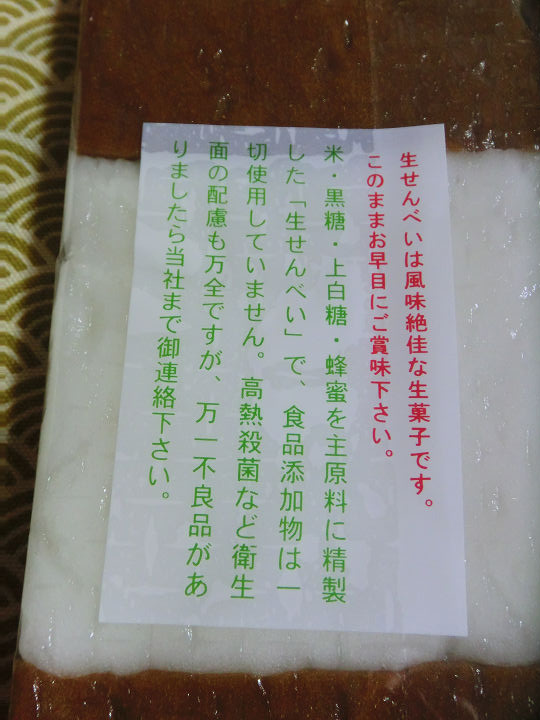 生せんべいは風味絶佳な生菓子です。
このままお早目にご賞味下さい。
米・黒糖・上白糖・蜂蜜を主原料に精製
した「生せんべい」で、食品添加物は一
切使用していません。高熱殺菌など衛生
面の配慮も万全ですが、万一不良品があ
りましたら当社まで御連絡下さい。